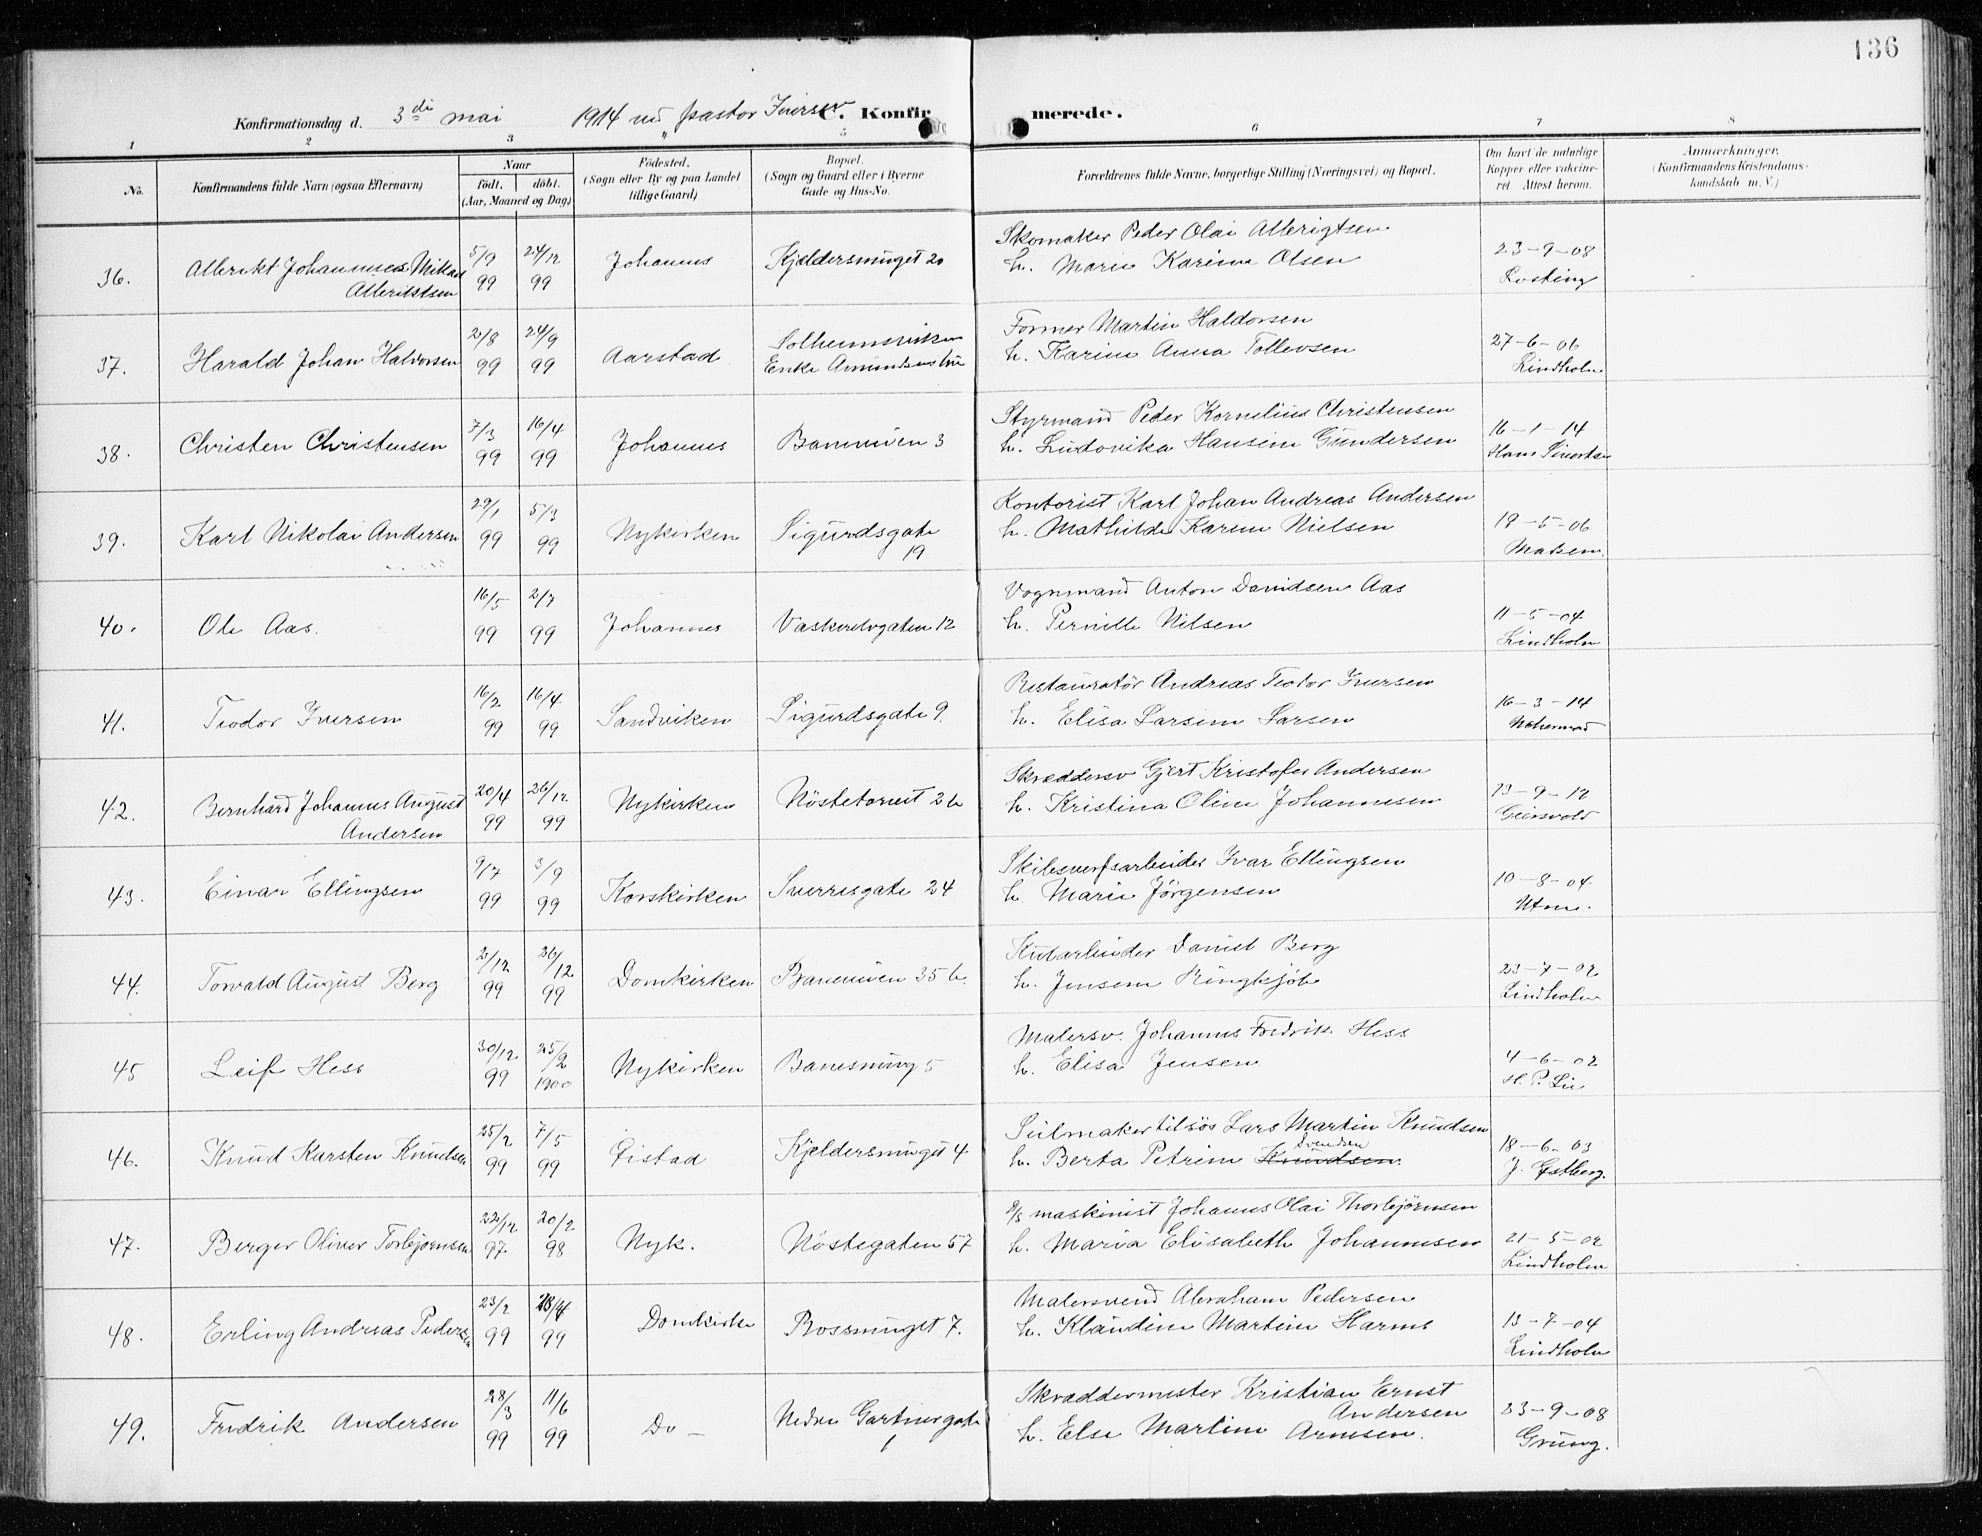 136
Konfirmationsdag d. 3die mai 1914 ved pastor Iversen C. Konfirmerede.
1 2 3 5 6 7 8
No. Konfirmandens fulde Navn (ogsaa Efternavn) Naar födt. döbt. (Aar, Maaned og Dag) Födested. (Sogn eller By og paa Landet tillige Gaard) Bopæl. (Sogn og Gaard eller i Byerne Gade og Hus-No. Forældrenes fulde Navne, borgerlige Stilling (Næringsvei) og Bopæl. Om havt de naturlige Kopper eller vakcineret. Attest herom. Anmærkninger. (Konfirmandens Kristendomskundskab m.V.)
36. Albrikt Johannes Mikal Albriktsen 5/9 99 24/12 99 Johannes Kjeldersmuget 20
Skomaker Peder Olai Albrigtsen
h. Marie Karine Olsen 23-9-08 Losting
37. Harald Johan Halvorsen 2/8 99 24/9 99 Aarstad Solheimsviken Enke Amundsens hus
Former Martin Haldorsen
h. Karine Anna Tollevsen 27-6-06 Lindholm
38. Christen Christensen 7/3 99 16/4 99 Johannes Baneveien 3
Styrmand Peder Kornelius Christensen
h. Ludovika Hansine Gundersen 16-1-14 Hans Sivertsen
39. Karl Nikolai Andersen 29/1 99 5/3 99 Nykirken Sigurdsgate 19
Kontorist Karl Johan Andreas Andersen
h. Mathilde Karine Nielsen 19-5-06 Madsen.
40. Ole Aas. 16/5 99 2/7 99 Johannes Vaskerelvgaten 12
Vognmand Anton Davidsen Aas
h. Pernille Nilsen 11-5-04 Lindholm
41. Teodor Iversen 16/2 99 16/4 99 Sandviken Sigurdsgate 9.
Restauratör Andreas Teodor Iversen
h. Elisa Larsine Larsen 16-3-14
42. Bernhard Johannes August Andersen 20/4 99 26/12 99 Nykirken Nöstetorvet 2b
Skræddersv Gjert Kristofer Andersen
h. Kristina Oline Johannesen 13-9-12 Geirsvold
43. Einar Ellingsen 9/7 99 3/9 99 Korskirken Sverresgate 24
Skibsverfsarbeider Ivar Ellingsen
h. Marie Jörgensen 10-8-04 Utne.
44. Torvald August Berg 2/12 99 26/12 99 Domkirken Baneveien 35 b.
Kularbeider Daniel Berg
h. Jensine Ringkjöb 23-7-02 Lindholm
45 Leif Hess 30/12 99 25/2 1900 Nykirken Banesmug 5
Malersv. Johannes Fredrik Hess
h. Elisa Jensen 4-6-02 H. P. Lie
46. Knud Karsten Knudsen 25/2 99 7/5 99 Gistad Kjeldersmuget 4.
Seilmaker tilsös Lars Martin Knudsen
h. Berta Petrine Knudsen Svendsen 18-6-03 J. Gjestberg.
47. Berger Oliver Torbjørnsen 22/12 97. 20/2 98 Nyk. Nöstegaten 57
D/S maskinist Johannes Olai Thorbjörnsen
h. Maria Elisabeth Johannesen 21-5-02 Lindholm
48. Erling Andreas Pedersen 23/2 99 23/4 99 Domkirke Rossmuget 7.
Malersvend Abraham Pedersen
h. Klaudine Martine Harms 13-7-04 Lindholm
49. Fredrik Andersen 28/3 99 11/6 99 Do – Nedre Gartnergate 1
Skræddermester Kristian Ernst Andersen
h. Else Martine Arnesen. 23-9-08 Grung.